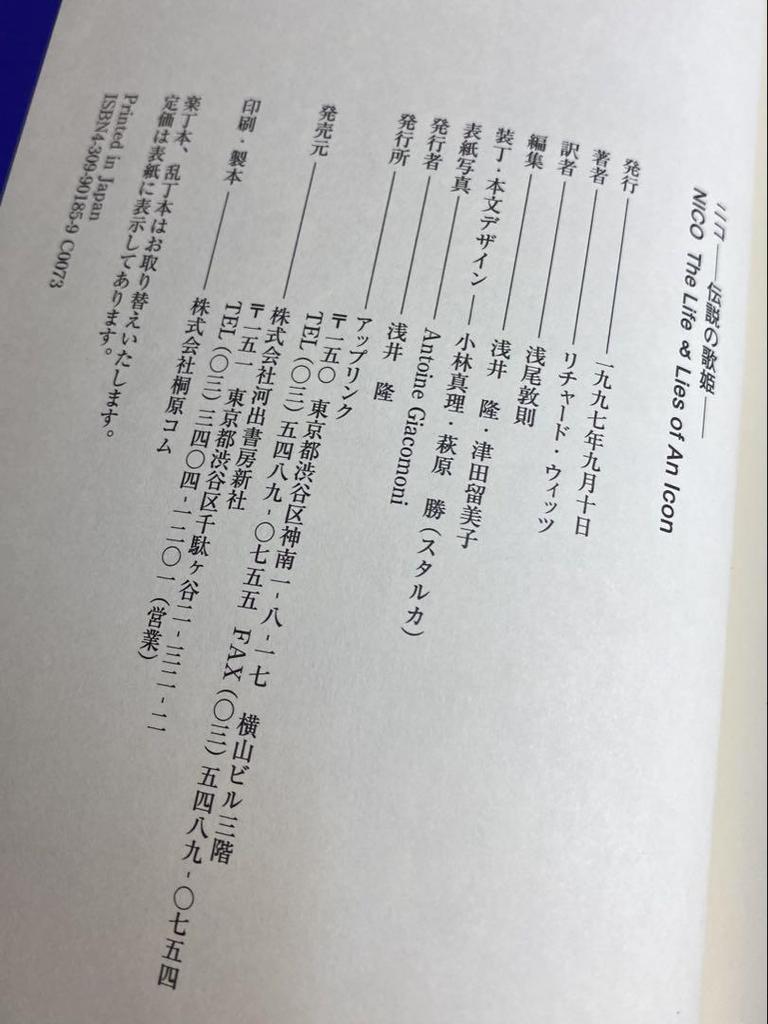 ニコ――伝説の歌姫――
NICO The Life & Lies of An Icon
発行――一九九七年九月十日
著者――リチャード・ウィッツ
訳者――浅尾敦則
編集――浅井 隆・津田留美子
装丁・本文デザイン――小林真理・萩原 勝(スタルカ)
表紙写真――Antoine Giacomoni
発行者――浅井 隆
発行所――アップリンク
〒一五〇 東京都渋谷区神南一-八-一七 横山ビル三階
TEL(〇三)五四八九-〇七五五 FAX(〇三)五四八九-〇七五四
発売元――株式会社河出書房新社
〒一五一 東京都渋谷区千駄ヶ谷二-三二-二
TEL(〇三)三四〇四-一二〇一(営業)
印刷・製本――株式会社桐原コム
落丁本、乱丁本はお取り替えいたします。
定価は表紙に表示してあります。
Printed in Japan
ISBN4-309-90185-9 C0073